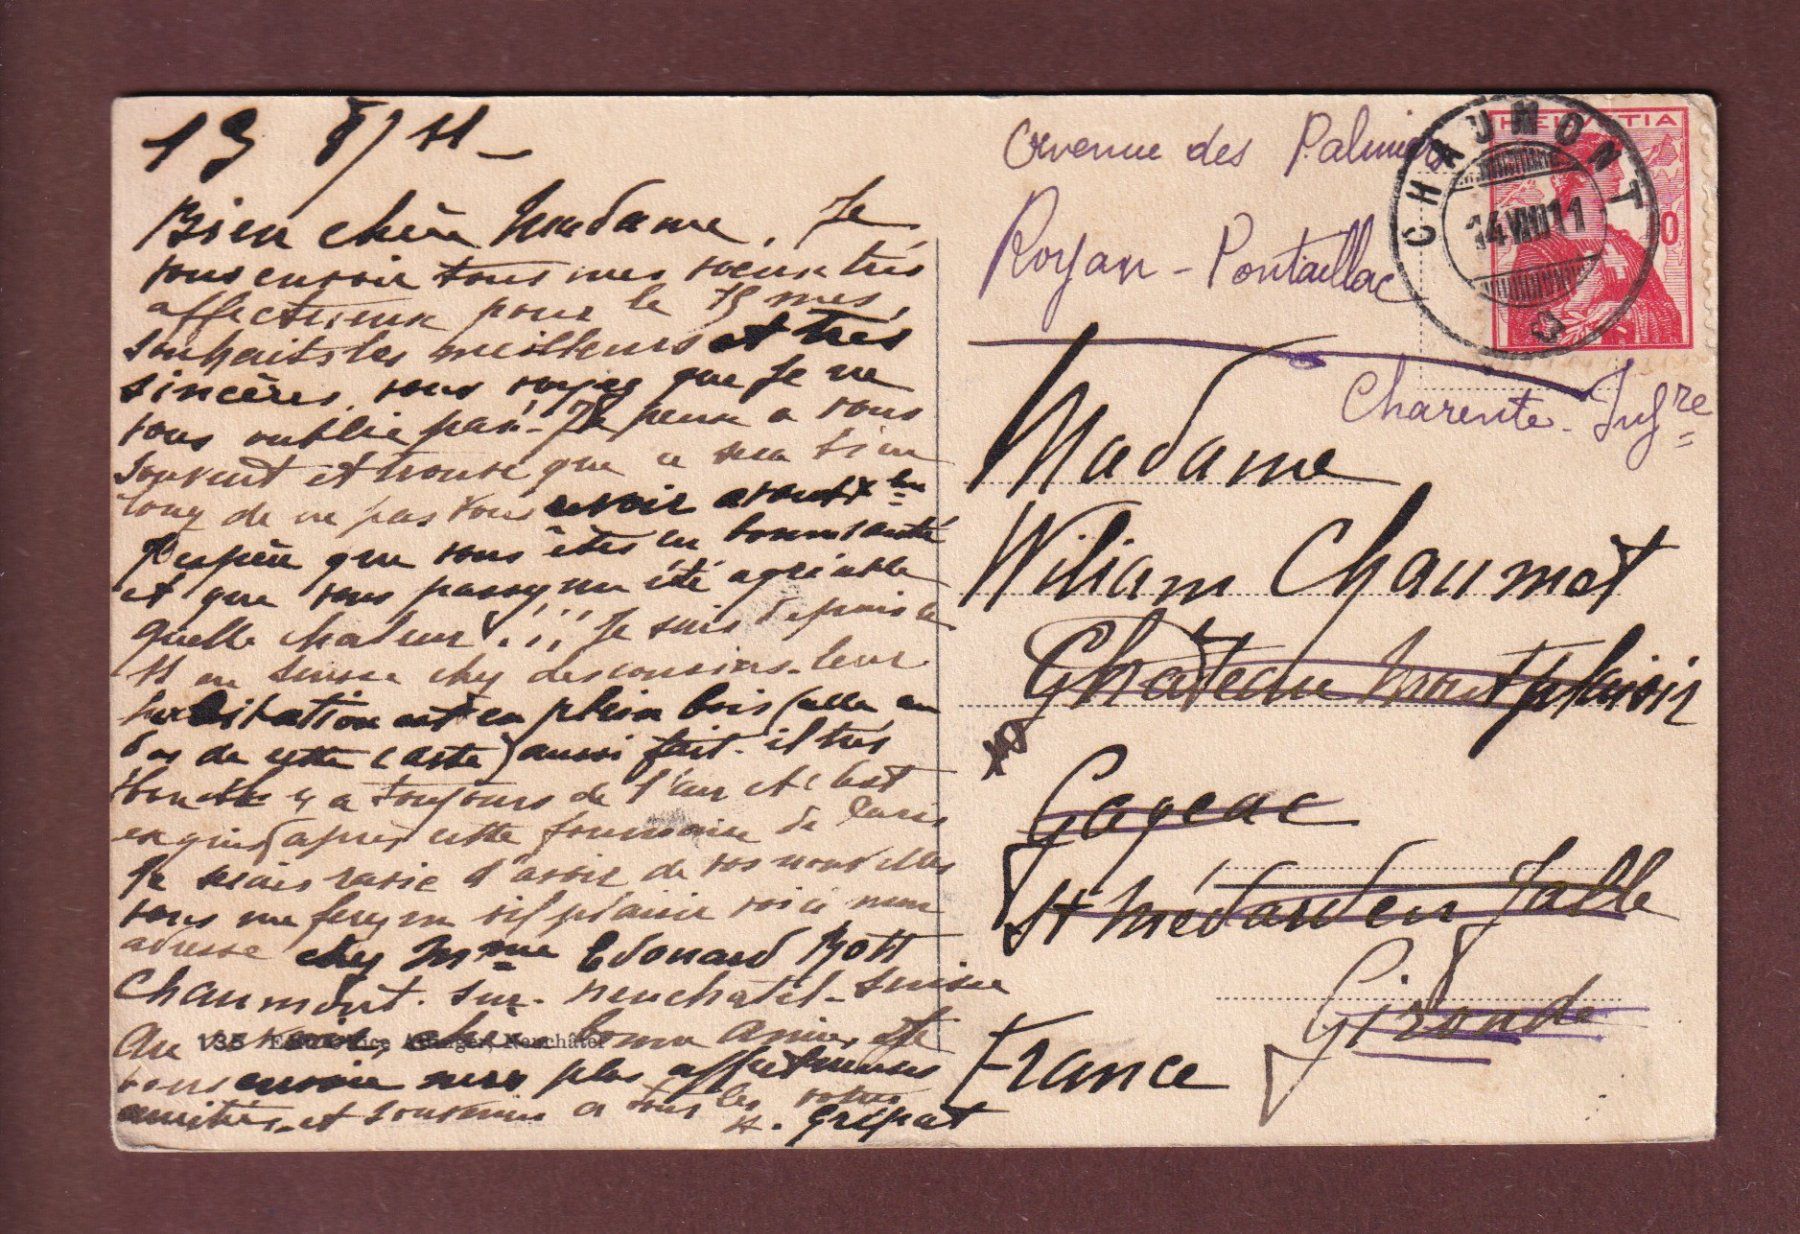 13 8/11 -
Bien chère Madame, Je
vous envoie tous mes voeux très
affectueux pour le 15 mes
souhaits les meilleurs et très
sincères, vous voyez que je ne
vous oublie pas. Je pense a vous
souvent et trouve que ce sera bien
long de ne pas vous revoir avant
J'espère que vous êtes en bonne santé
et que vous passez un été agréable
quelle chaleur !!! Je suis depuis le
11 en Suisse chez des cousins. leur
habitation est en plein bois (celle en
bas de cette carte) aussi fait-il très
bon il y a toujours de l'air et c'est
exquis après cette fournaise de Paris
Je serais ravie d'avoir de vos nouvelles
vous me ferez un vif plaisir voici mon
adresse chez Mme Edouard Bott
Chaumont. sur. Neuchatel - Suisse
Au revoir, chère bonne amie, et je
vous envoie mes plus affectueuses
amitiés, et souvenirs a tous les votres
H. Grépat
135 Neuchâtel
Avenue des Palmiers
Royan - Pontaillac
Charente-Infre
Madame
Wiliam Chaumet
Château Montplaisir
Gageac
St Médard en Jalle
Gironde
France
HELVETIA
CHAUMONT
14 VIII 11